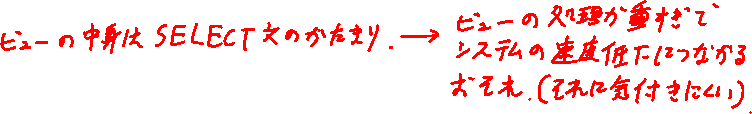 ビューの中身は SELECT文のかたまり. → ビューの処理が重すぎで
システムの速度低下につながる
おそれ.(それに気付きにくい)